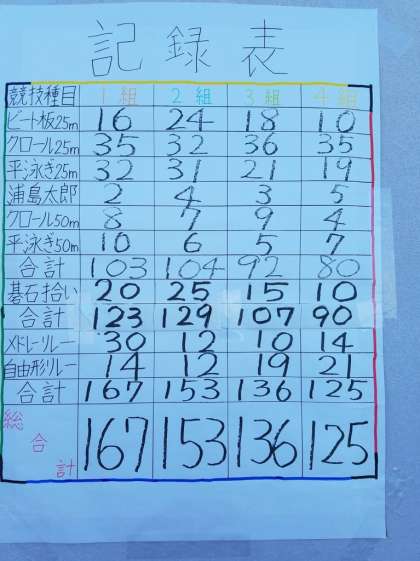 記録表
競技種目 1組 2組 3組 4組
ビート板25m 16 24 18 10
クロール25m 35 32 36 35
平泳ぎ25m 32 31 21 19
浦島太郎 2 4 3 5
クロール50m 8 7 9 4
平泳ぎ50m 10 6 5 7
合計 103 104 92 80
碁石拾い 20 25 15 10
合計 123 129 107 90
メドレーリレー 30 12 10 14
自由形リレー 14 12 19 21
合計 167 153 136 125
総合計 167 153 136 125